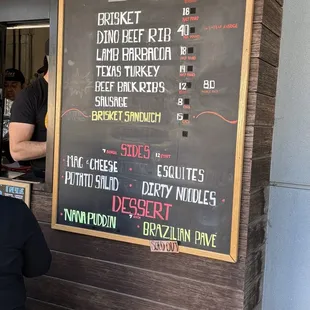 BRISKET 18
DINO BEEF RIB 40
LAMB BARBACOA 18
TEXAS TURKEY
BEEF BACK RIBS 12 80
SAUSAGE 8
BRISKET SANDWICH 15
SIDES
MAC & CHEESE • ESQUITES
POTATO SALAD • DIRTY NOODLES
DESSERT
NANA PUDDIN • BRAZILIAN PAVÊ
SOLD OUT